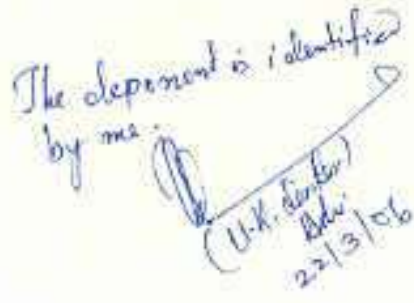 The deponent is identified
by me.
(U.K.
Adv.
22/3/06